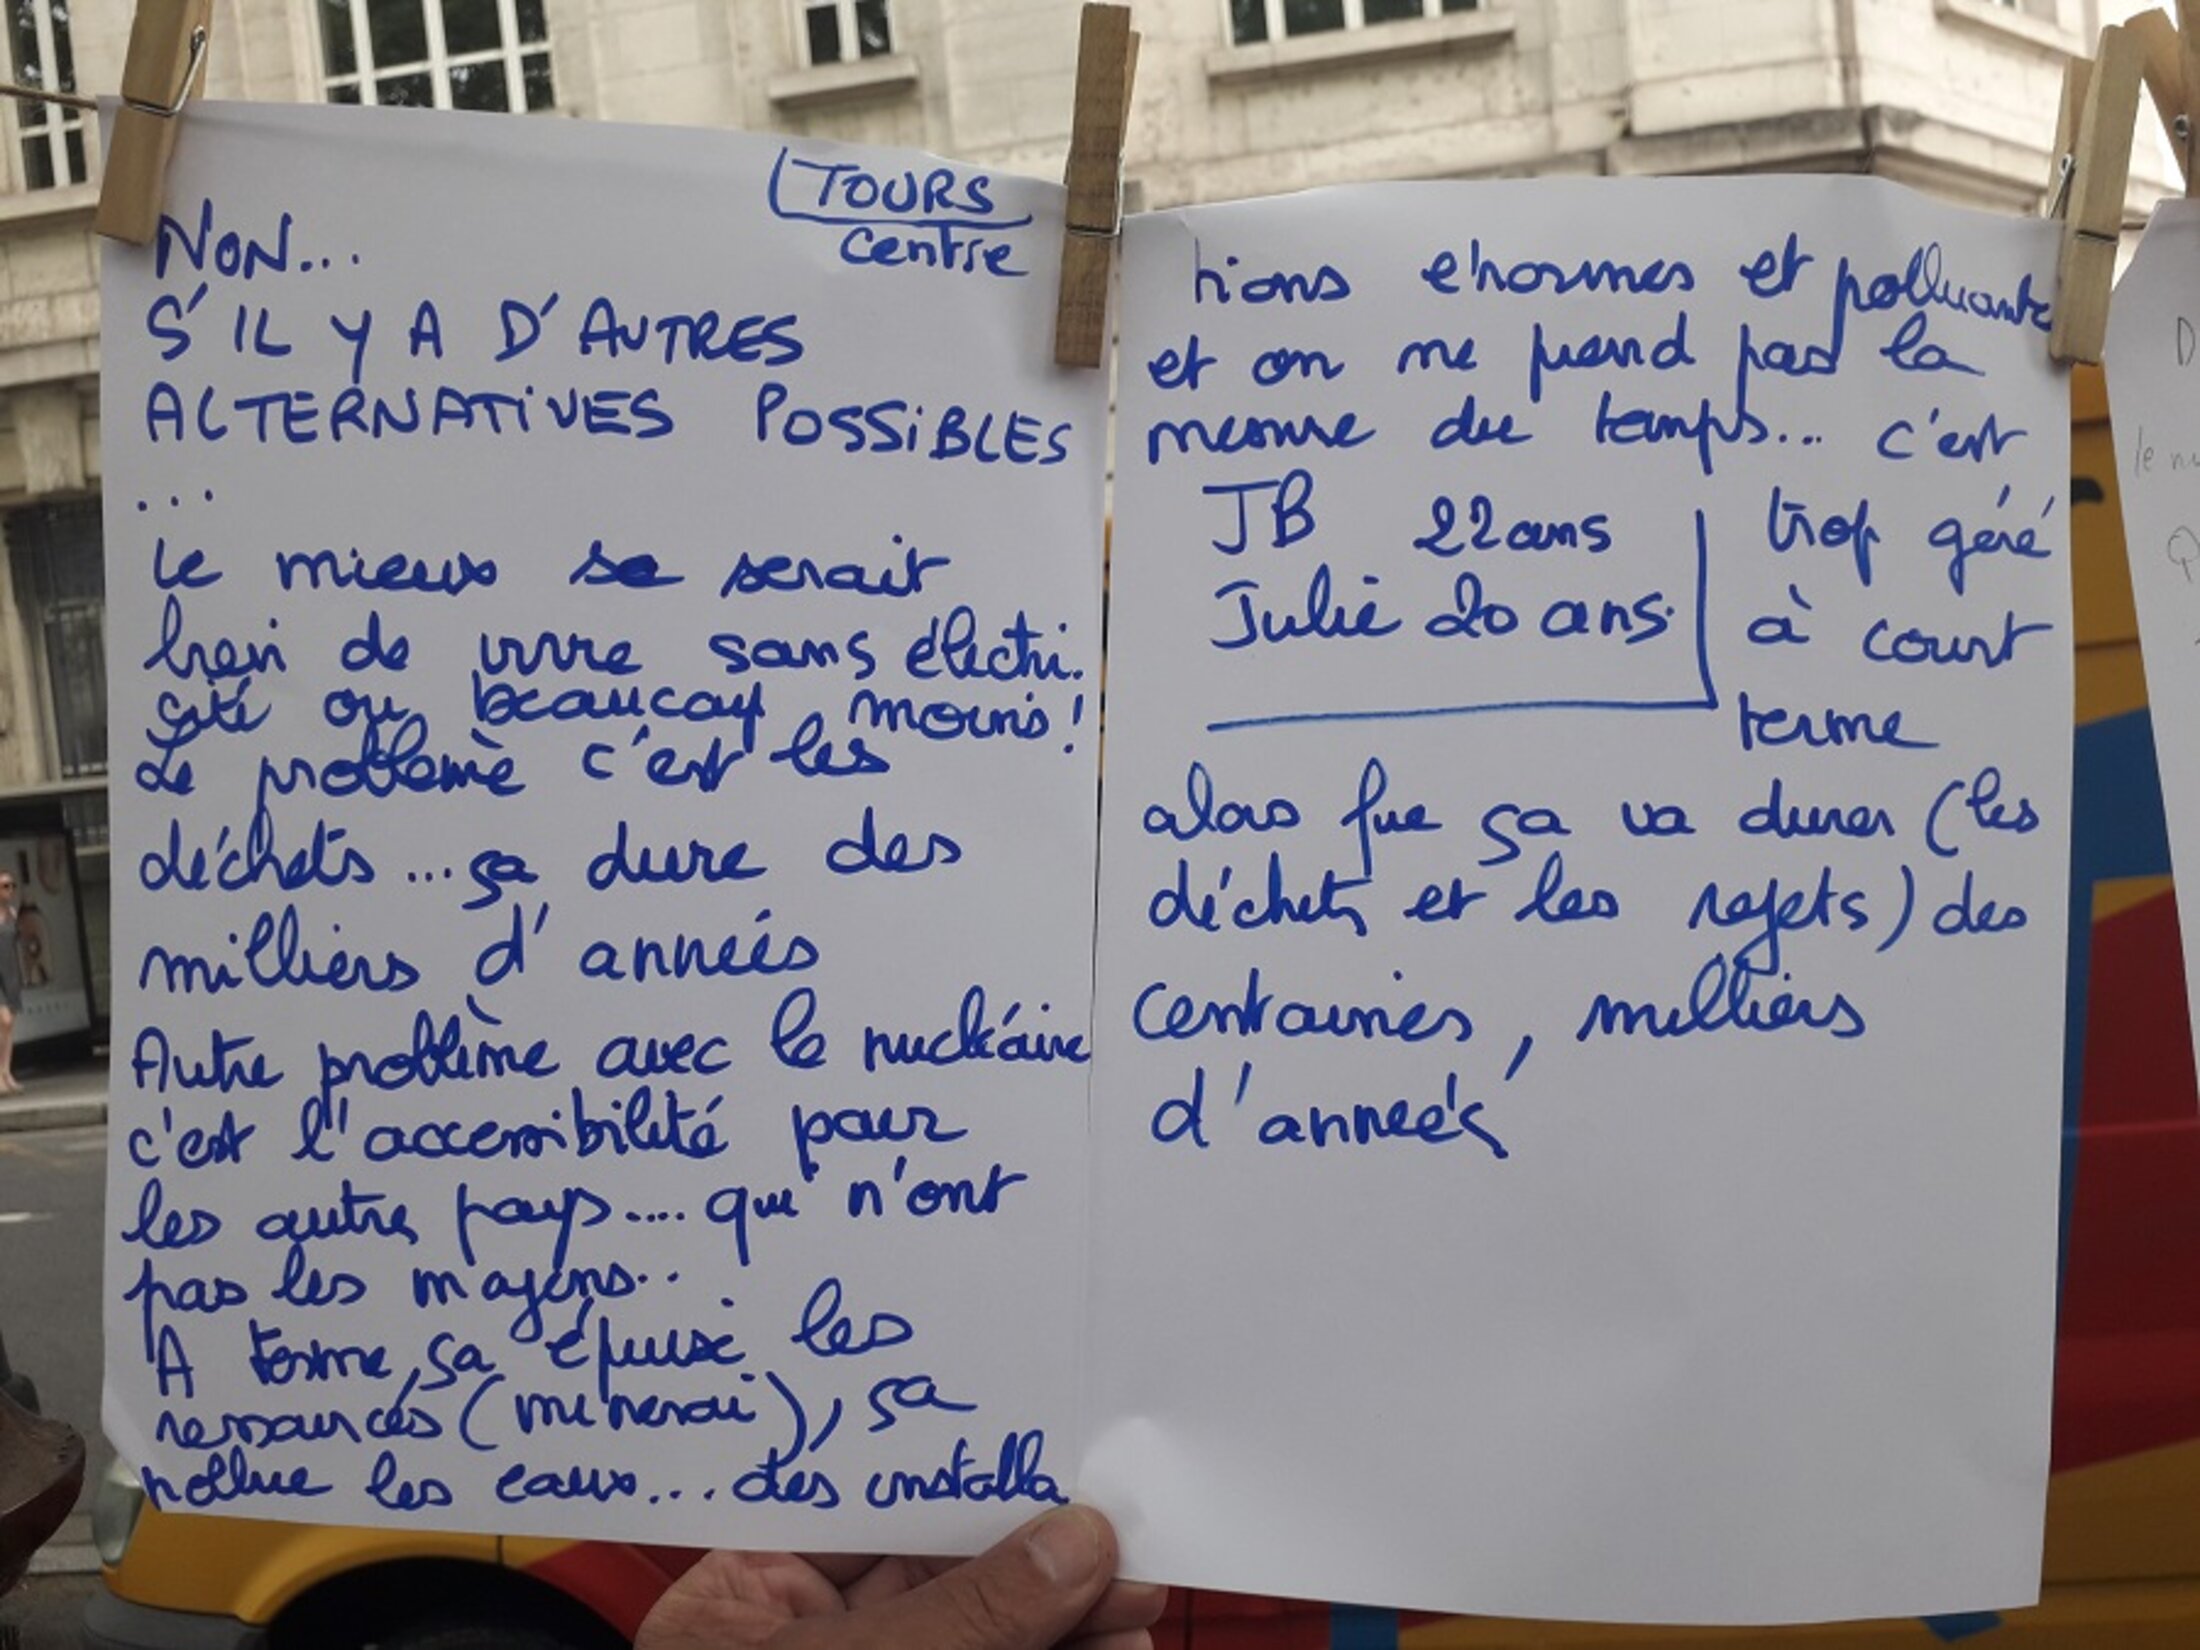 TOURS
Centre
NON...
S'IL Y A D'AUTRES
ALTERNATIVES POSSIBLES
...
Le mieux se serait
bien de vivre sans électri.
cité ou beaucoup moins!
Le problème c'est les
déchets ... ça dure des
milliers d'années
Autre problème avec le nucléaire
c'est l'accessibilité pour
les autres pays.... qui n'ont
pas les moyens..
A terme, ça épuise les
ressources (minerai), ça
pollue les eaux... des installa
tions énormes et polluante
et on ne prend pas la
mesure du temps... c'est
trop géré
à court
terme
JB 22 ans
Julie 20 ans.
alors que ça va durer (les
déchets et les rejets) des
centaines, milliers
d'années
D
le nu
Q